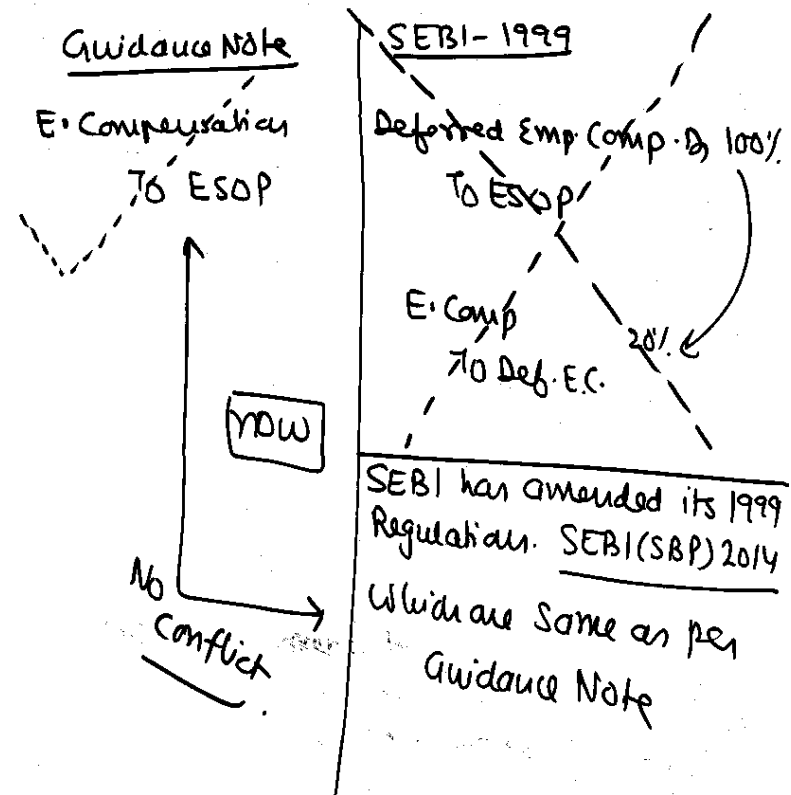 Guidance Note
E. Compensation
To ESOP
NOW
No
Conflict
SEBI - 1999
Deferred Emp. Comp. Dr 100%
To ESOP
E. Comp
20%
To Def. E.C.
SEBI has amended its 1999
Regulation. SEBI (SBP) 2014
which are same as per
Guidance Note